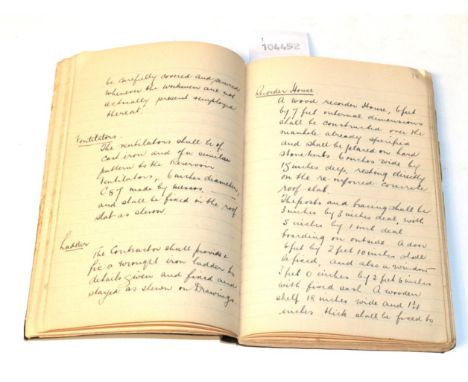 104452
be carefully covered and secured
whenever the workmen are not
actually present employed
thereat.
Ventilators.
The ventilators shall be of
cast iron and of a similar
pattern to the Reservoir
Ventilators, 6 inches diameter,
C & J made by Messrs.
and shall be fixed in the roof
slab as shewn
Ladder
The Contractor shall provide &
fix a wrought iron ladder to
details given and fixed and
stayed as shewn on Drawings
Recorder House
A wood recorder House, 6 feet
by 7 feet external dimensions
shall be constructed over the
manhole already specified
and shall be placed on hard
stone kerbs 6 inches wide by
15 inches deep, resting directly
on the re-inforced concrete
roof slab.
The posts and bracing shall be
3 inches by 3 inches deal, with
5 inches by 1 inch deal
boarding on outside. A door
6 feet by 2 feet 10 inches shall
be fixed, and also a window
2 feet 0 inches by 2 feet 6 inches
with fixed sash. A wooden
shelf 18 inches wide and
inches thick shall be fixed to